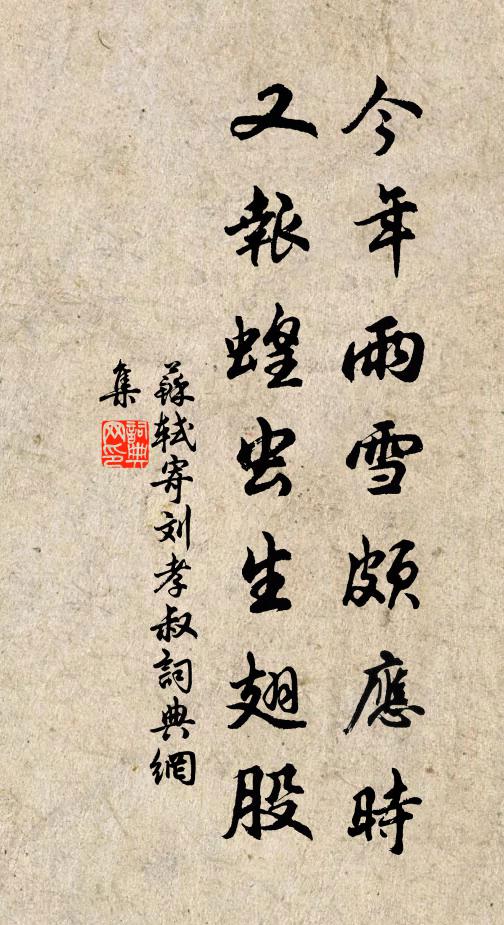 今年雨雪頗應時
又報蝗虫生翅股
蘇軾寄刘孝叔詞典網
集
詞典
网印